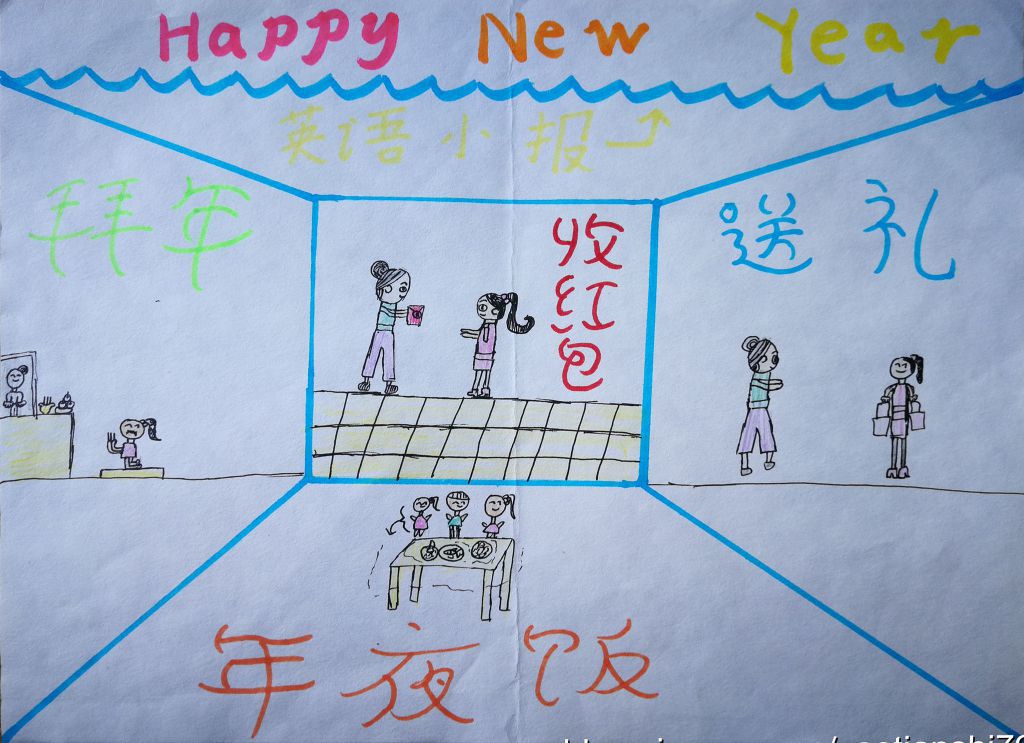 Happy New Year
英语小报
拜年
收红包
送礼
年夜饭